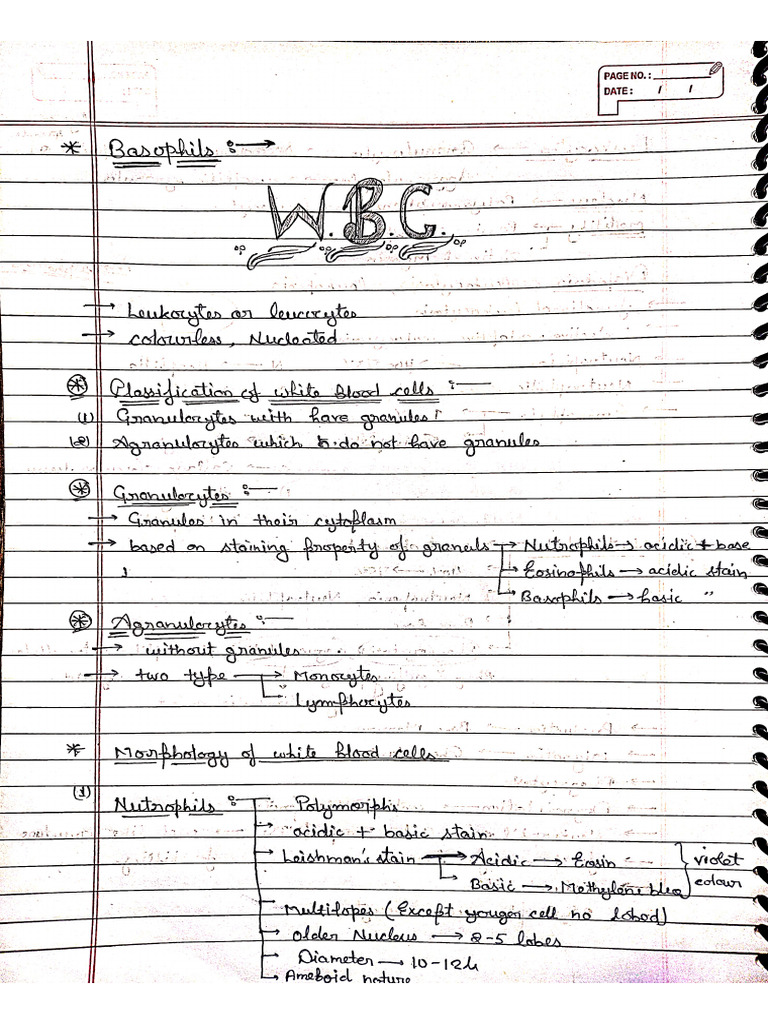 PAGE NO.:
DATE: / /
* Basophils :→
W.B.C.
→ Leukocytes or leucocytes
→ colourless, Nucleated
* Classification of white blood cells :—
(1) Granulocytes with have granules
(2) Agranulocytes which do not have granules
* Granulocytes :—
→ Granules in their cytoplasm
→ based on staining property of granuls → Nutrophils → acidic + base
→ Eosinophils → acidic stain
→ Basophils → basic "
* Agranulocytes :—
→ without granules
→ two type → Monocytes
→ Lymphocytes
* Morphology of white blood cells
(1) Nutrophils :— Polymorphs
→ acidic + basic stain
→ Leishman's stain → Acidic → Eosin } violet
→ Basic → Methylene blea colour
Multilopes (Except youger cell no lobod)
→ older Nucleus → 2-5 lobes
→ Diameter → 10-12µ
→ Ameboid nature